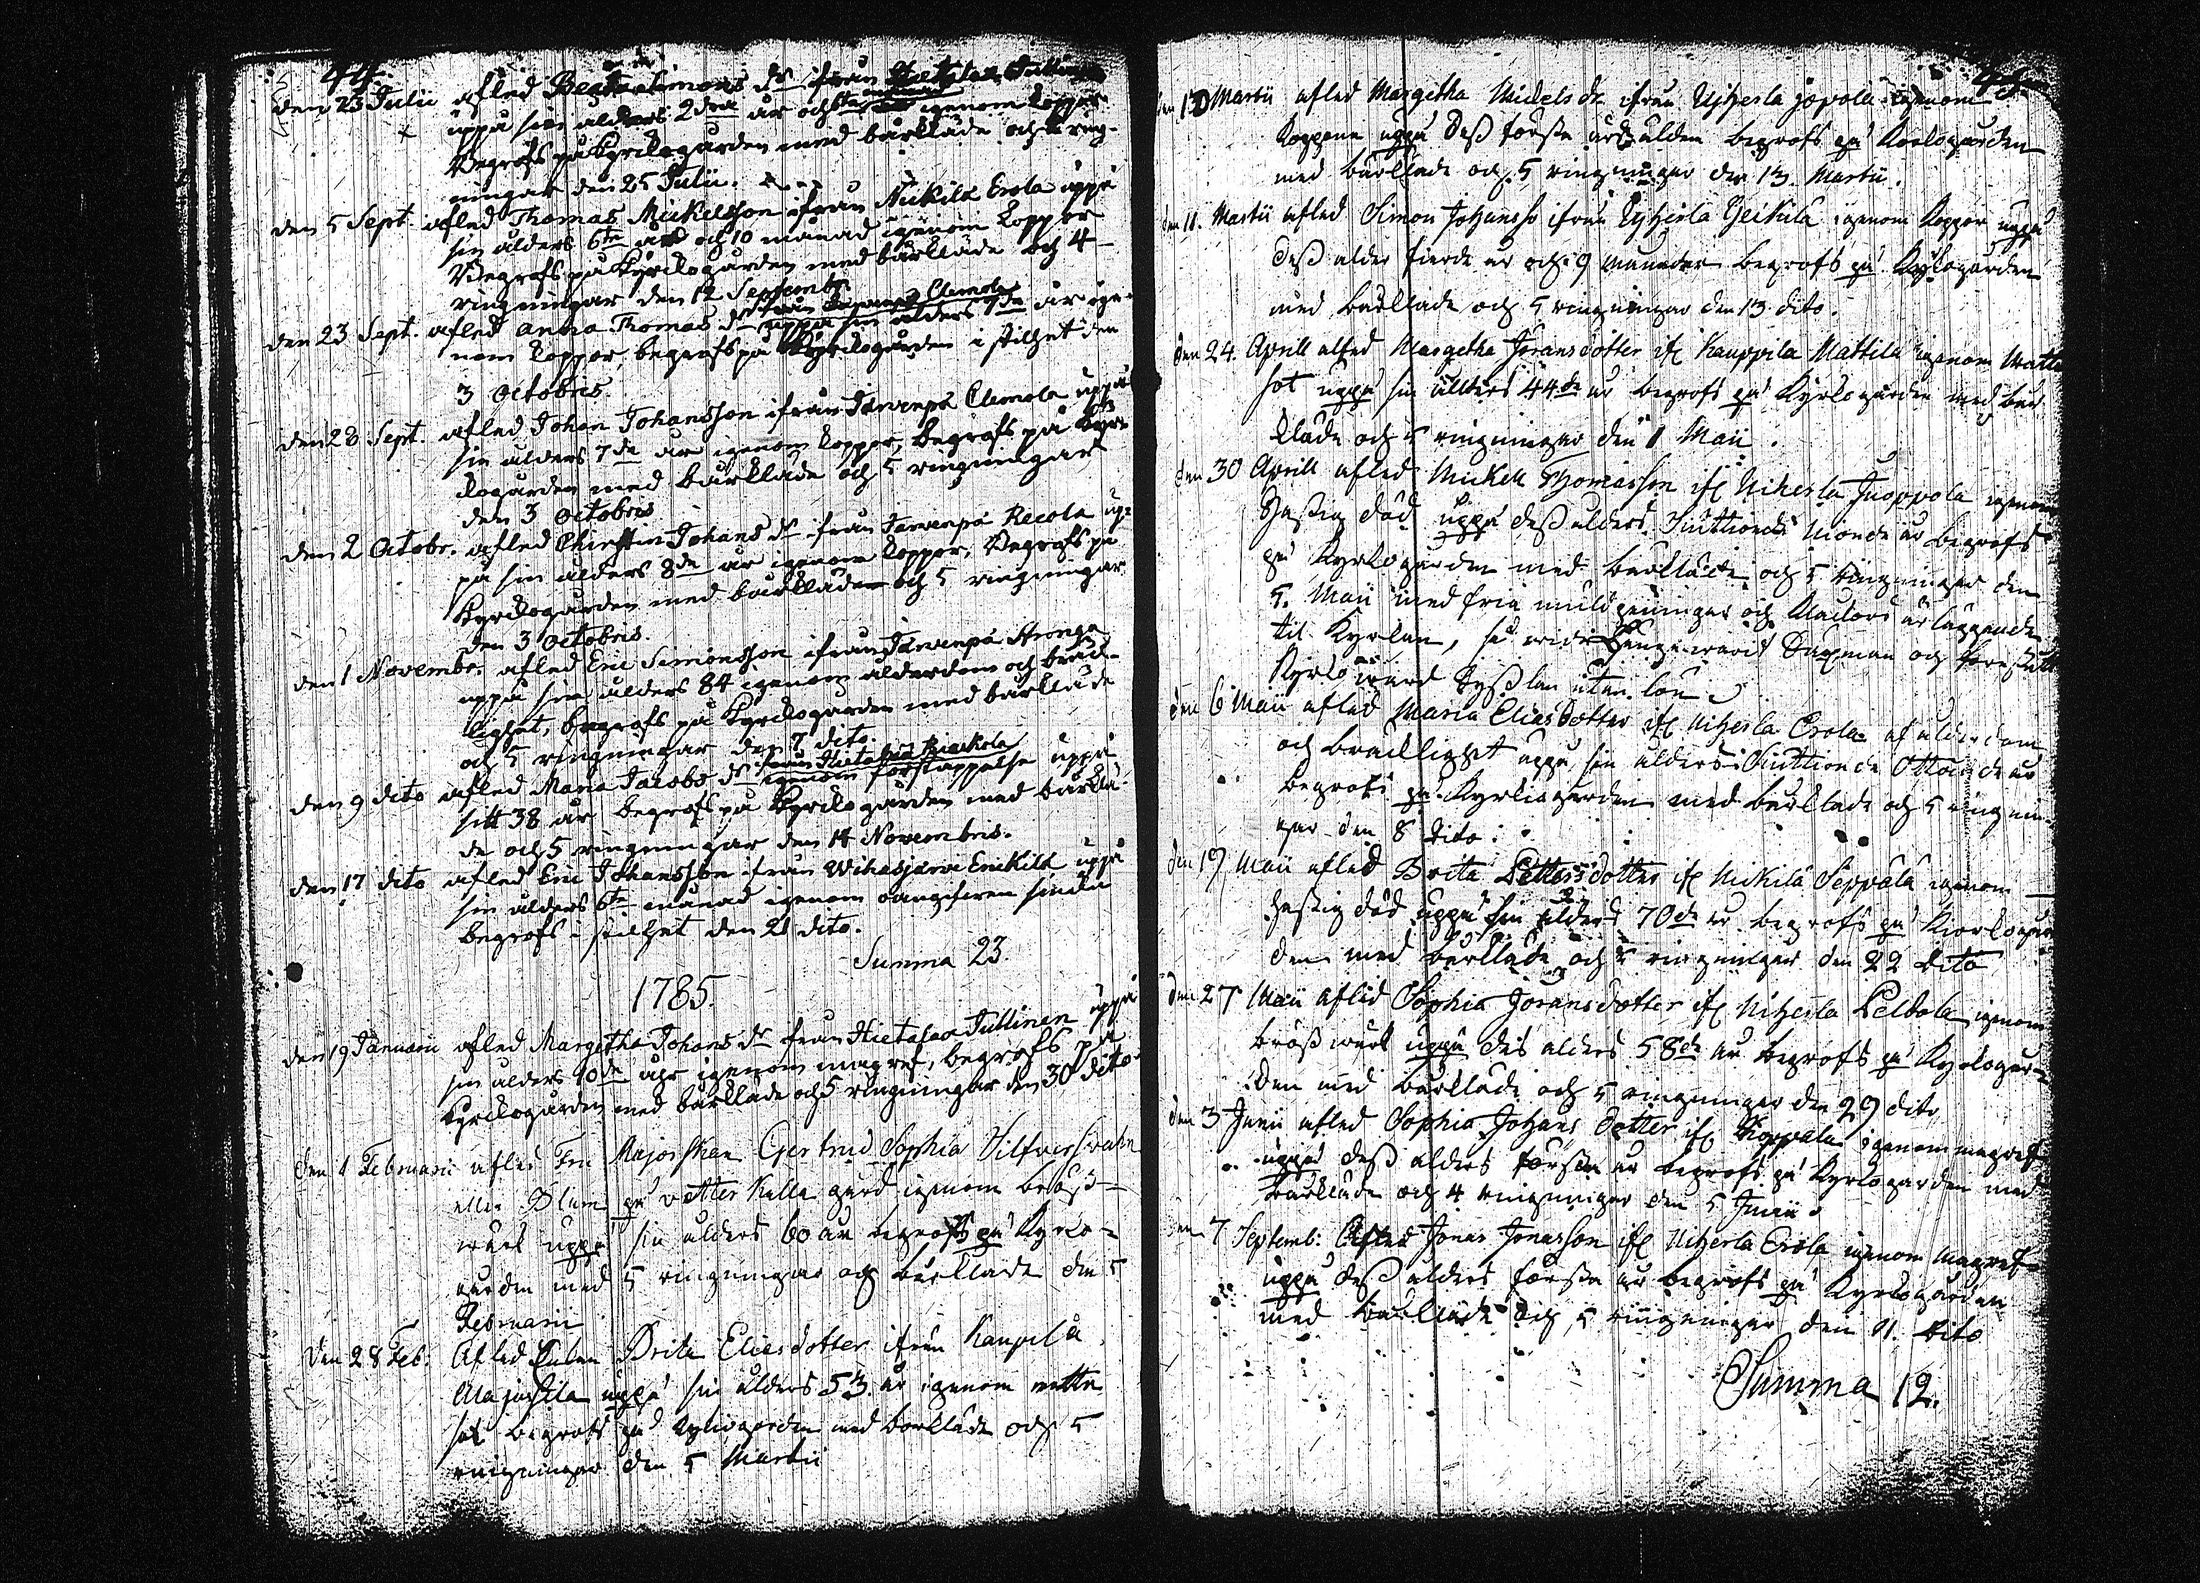 44.
den 23 Julii afled Beata Simons dr ifrån Hietalax Tullinen
uppå sin ålders 2dra år och igenom koppor
Begrofs på Kyrckogården med bårkläde och ring-
ningar den 25 Julii.
den 5 Sept. afled Thomas Mickelsson ifrån Nickilä Erola uppå
sin ålders 6te år och 10 månad igenom koppor
Begrofs på Kyrckogården med bårkläde och 4
ringningar den 12 Septembr
ifrån Järvenpä Clemola
den 23 Sept. afled anna Thomas dr uppå sin ålders 7de år ige-
nom koppor, begrofs på Kyrckogården i stilhet den
3 Octobris.
den 28 Sept. afled Johan Johansson ifrån Järvenpä Clemola uppå
sin ålders 7de år igenom koppor, begrofs på Kyrc-
kogården med bårkläde och 5 ringningar
den 3 Octobris
den 2 Octobr. afled Christin Johans dr ifrån Järvenpä Recola up-
på sin ålders 8de år igenom koppor, Begrofs på
Kyrckogården med bårkläde och 5 ringningar
den 3 Octobris.
den 1 Novembr. afled Eric Simonsson ifrån Järvenpä Stronga
uppå sin ålders 84 igenom ålderdom och bräck-
lighet, begrofs på Kyrckogården med bårkläde
och 5 ringningar den 7 dito.
från Hietalax
den 9 dito afled Maria Jacobs dr igenom förstoppelse uppå
sitt 38 år begrofs på Kyrckogården med bårklä-
de och 5 ringningar den 14 Novembris.
den 17 dito afled Eric Johansson ifrån Wihasjärvi Erickilä uppå
sin ålders 6te månad igenom siuka
begrofs i stilhet den 21 dito.
Summa 23.
1785.
den 19 Januarii afled Margetha Johans dr från Hietalax Tullinen uppå
sin ålders 10de åhr igenom magref, begrofs på
Kyrckogården med bårkläde och 5 ringningar den 30 dito
den 1 Februarii afled Fru Majorskan Gjertrud Sophia Silfversvahn
eller Blum på vätter Kulla gård igenom bröst-
wärk uppå sin ålders 60 år begrofs på Kyrko-
gården med 5 ringningar och bårkläde den 5
Februarii
Den 28 Feb. Afled Enkan Brita Eliedotter ifrån Kaupila
Alajussila uppå sin ålders 53 år igenom vattu
sot begrofs på Kyrkogården med bårkläde och 5
ringningar den 5 Martii
den 10 Martii afled Margetha Mickels dr ifrån Ujherla igenom
Koppene uppå Deß första års ålder begrofs på Kyrkogården
med bårkläde och 5 ringningar den 13 Martii.
den 11. Martii afled Simon Johansson ifrån Uyherla Heikulä igenom Koppor uppå
Deß ålder fierde år och 9 månader begrofs på Kyrkogården
med bårkläde och 5 ringningar den 13 dito.
den 24. Aprill afled Margetha Jöransdotter if Kauppila Mattila igenom Wattu
sot uppå sin ålders 44de år begrofs på Kyrkogården med bår
kläde och 5 ringningar den 1 Maii.
den 30 Aprill afled Mickell Thomasson if Uiherla Juoppola igenom
Hastig död uppå deß ålders Siuttionde Nionde år begrofs
på Kyrkogården med bårkläde och 5 ringningar den
5. Maii med fria mullpenningar och
til Kyrkan, och förestått
Kyrko tysslan utan lön
den 6 Maii afled Maria Eliædotter if Uiherla Erola af ålderdom
och bräcklighet uppå sin ålders Siuttionde Ottonde år
begrofs på Kyrkiogården med bårkläde och 5 ringnin-
gar den 8 dito.
den 19 Maii afled Brita Pettersdotter if Nickilä Seppälä igenom
hastig död uppå sin ålders 70de år begrofs på Kyrkogår
den med bårkläde och 5 ringningar den 22 dito
den 27 Maii afled Sophia Jöransdotter if Uiherla Peldola igenom
bröst wärk uppå des ålders 58de år begrofs på Kyrkogår-
den med bårkläde och 5 ringningar den 29 dito
den 3 Junii afled Sophia Johans dotter if Koppala igenom magref
uppå deß ålders första år begrofs på Kyrkogården med
bårkläde och 4 ringningar den 5 Junii
den 7 Septemb: Afled Jonas Jonasson if Uiherla Erola igenom magref
uppå deß ålders första år begrofs på Kyrkogården
med bårkläde och 5 ringningar den 11. dito
Summa 12.